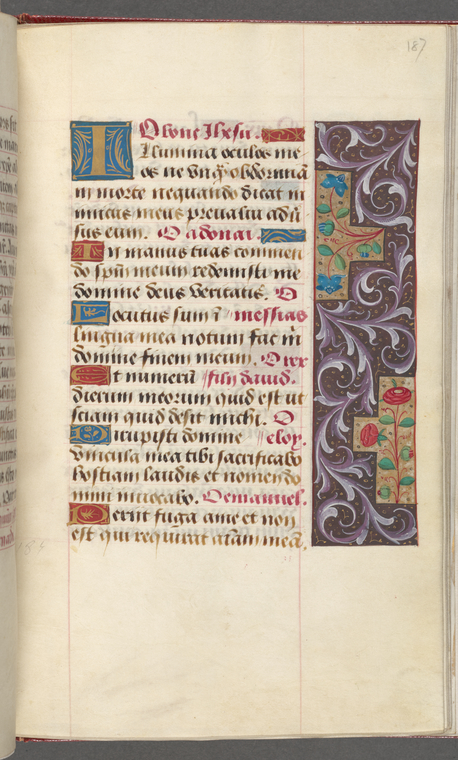 187
O bone Ihesu.
Illumina oculos me
os ne vnq̃ obdormiã
in morte nequando dicat in
imicus meus preualui adũ
sus eum. O adonai.
In manus tuas commen
do spm̃ meum redemisti me
domine deus veritatis. O
Locutus sum ĩ messias
lingua mea notum fac m̃
domine finem meum. O rex
Et numerũ filij dauid.
dierum meorum quid est ut
sciam quid desit michi. O
Dirupisti domine eloy.
vincula mea tibi sacrificabo
hostiam laudis et nomen do
mini inuocabo. O emanuel.
Periit fuga a me et non
est qui requirat aĩam meã.